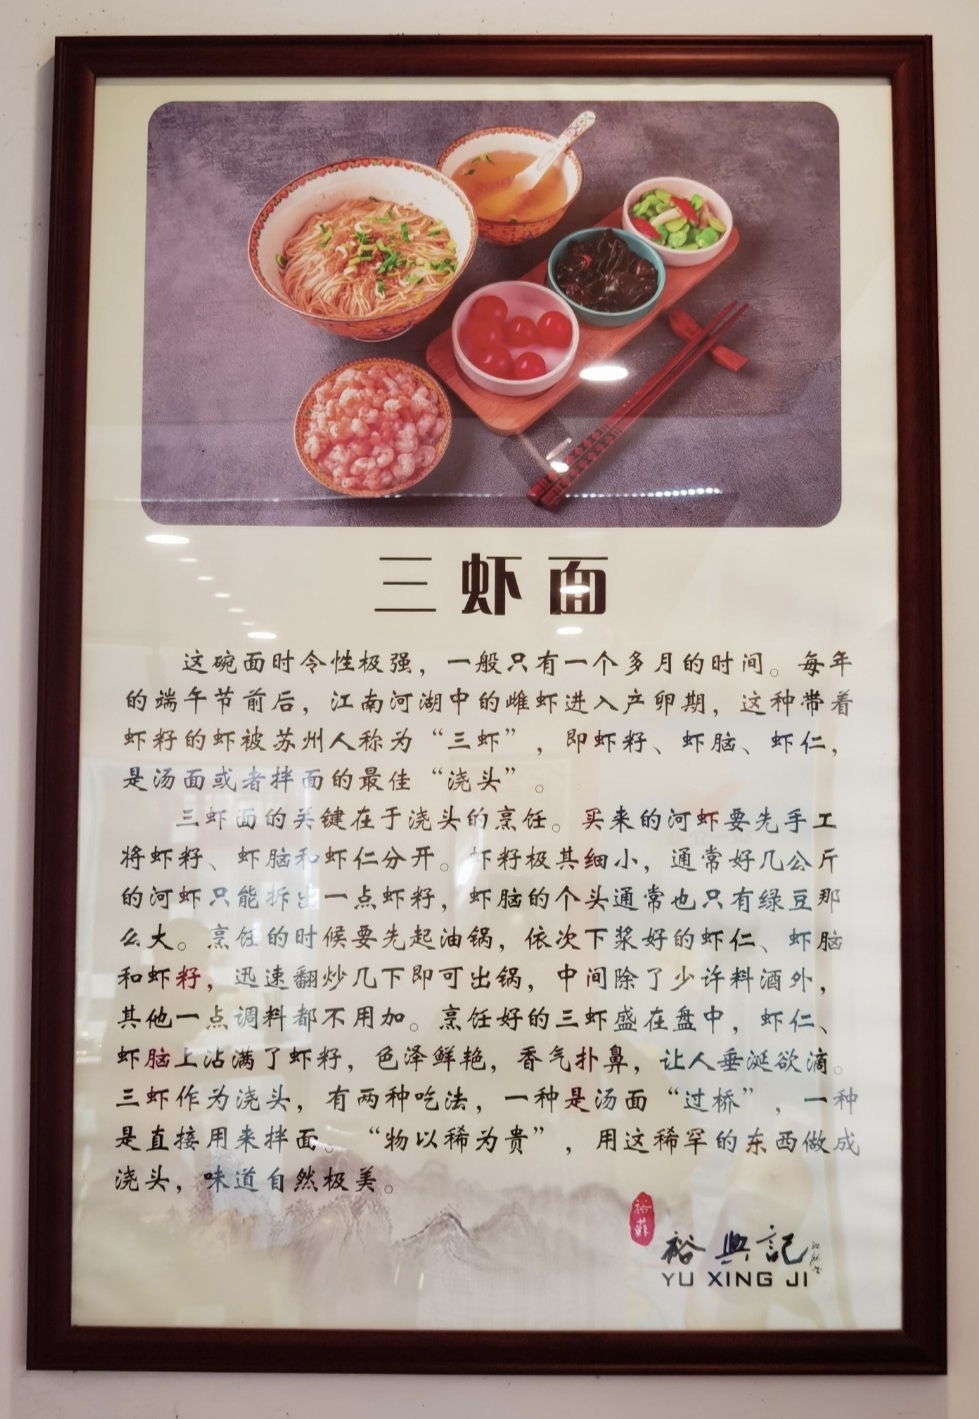 三虾面
这碗面时令性极强，一般只有一个多月的时间。每年
的端午节前后，江南河湖中的雌虾进入产卵期，这种带着
虾籽的虾被苏州人称为“三虾”，即虾籽、虾脑、虾仁，
是汤面或者拌面的最佳“浇头”。
三虾面的关键在于浇头的烹饪。买来的河虾要先手工
将虾籽、虾脑和虾仁分开。虾籽极其细小，通常好几公斤
的河虾只能拆出一点虾籽，虾脑的个头通常也只有绿豆那
么大。烹饪的时候要先起油锅，依次下浆好的虾仁、虾脑
和虾籽，迅速翻炒几下即可出锅，中间除了少许料酒外，
其他一点调料都不用加。烹饪好的三虾盛在盘中，虾仁、
虾脑上沾满了虾籽，色泽鲜艳，香气扑鼻，让人垂涎欲滴。
三虾作为浇头，有两种吃法，一种是汤面“过桥”，一种
是直接用来拌面。“物以稀为贵”，用这稀罕的东西做成
浇头，味道自然极美。
裕興記
YU XING JI